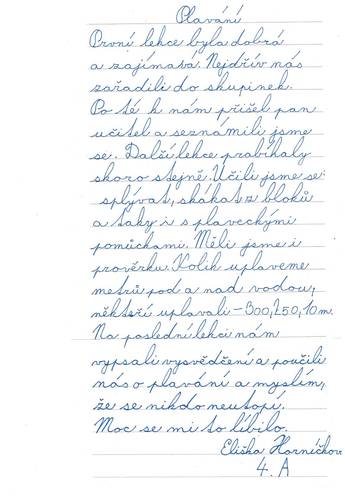 Plavání
První lekce byla dobrá
a zajímavá. Nejdřív nás
zařadili do skupinek.
Po té k nám přišel pan
učitel a seznámili jsme
se. Další lekce probíhaly
skoro stejně. Učili jsme se:
splývat, skákat z bloků
a taky i s plaveckými
pomůckami. Měli jsme i
prověrku. Kolik uplaveme
metrů pod a nad vodou,
někteří uplavali - 300, 250, 10 m.
Na poslední lekci nám
vypsali vysvědčení a poučili
nás o plavání a myslím,
že se nikdo neutopí.
Moc se mi to líbilo.
Eliška Horníčkova
4. A